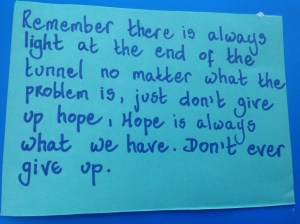 Remember there is always
light at the end of the
tunnel no matter what the
problem is, just don't give
up hope, Hope is always
what we have. Don't ever
give up.